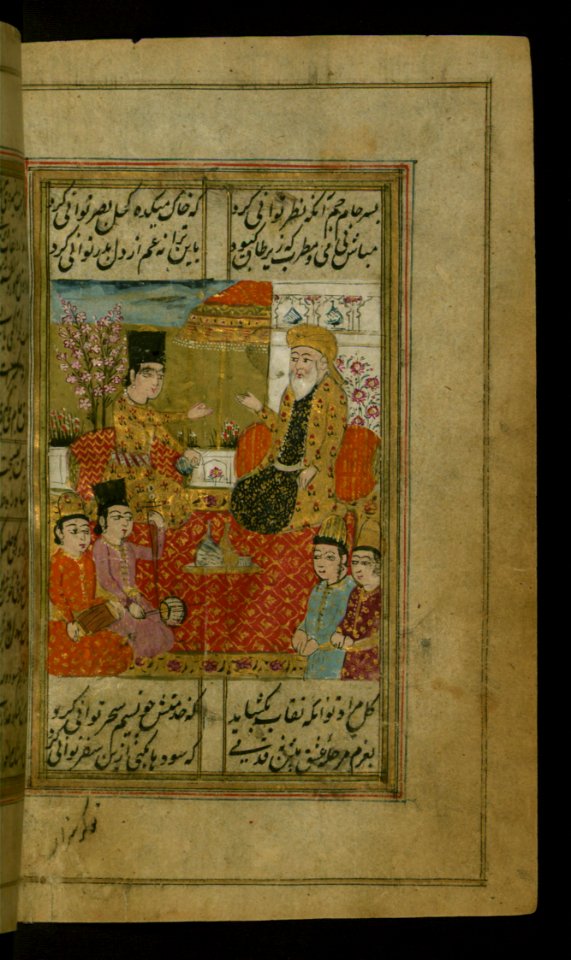 بسر جام جم آنکه نظر توانی کرد که خاک میکده کحل بصر توانی کرد
مباش بی می و مطرب که زیر طاق کبود باین ترانه غم از دل بدر توانی کرد
گل مراد تو آنکه نقاب بکشاید که خدمتش چو نسیم سحر توانی کرد
بعزم مرحلهٔ عشق پیش نه قدمی که سودها کنی ار این سفر توانی کرد